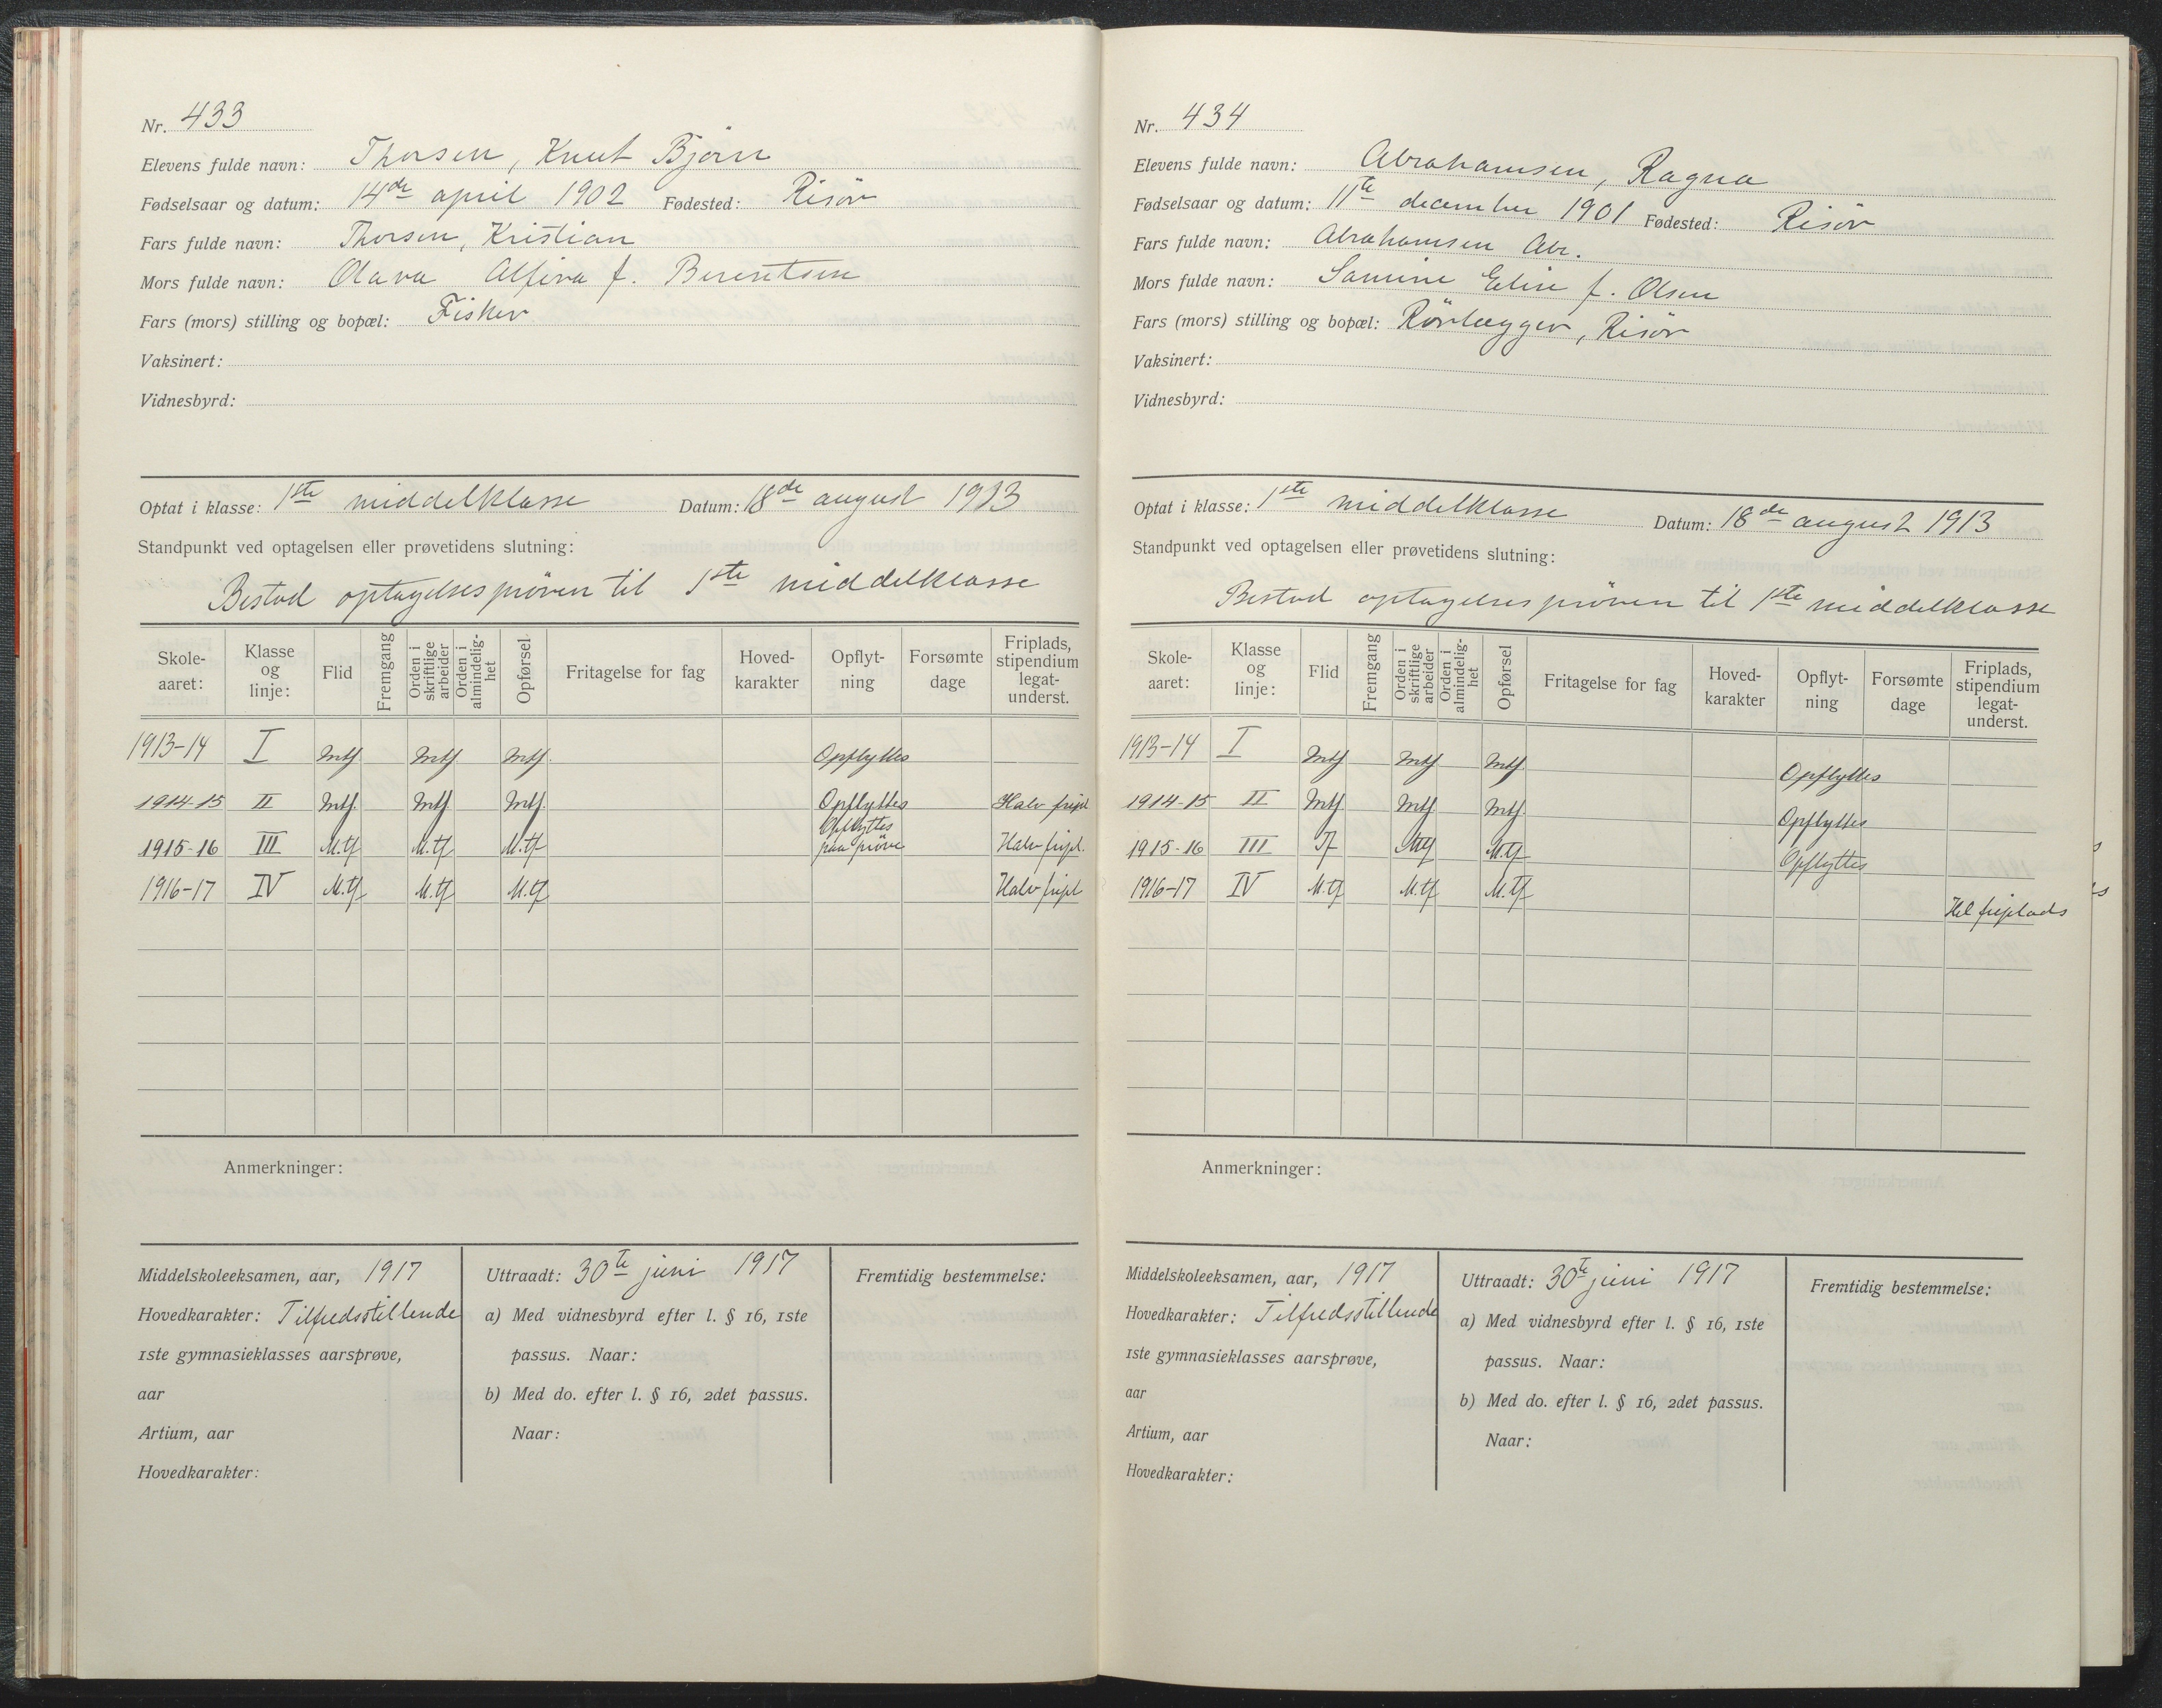 Nr. 433
Elevens fulde navn: Thorsen, Knut Bjørn
Fødselsaar og datum: 14de april 1902 Fødested: Risör
Fars fulde navn: Thorsen, Kristian
Mors fulde navn: Olava Alfiva f. Berentsen
Fars (mors) stilling og bopæl: Fisker
Vaksinert:
Vidnesbyrd:
Optat i klasse: 1ste middelklasse Datum: 18de august 1913
Standpunkt ved optagelsen eller prøvetidens slutning:
Bestod optagelsespröven til 1ste middelklasse
Skole-aaret: Klasse og linje: Flid Fremgang Orden i skriftlige arbeider Orden i almindelig-het Opførsel Fritagelse for fag Hoved-karakter Opflyt-ning Forsømte dage Friplads, stipendium legat-underst.
1913-14 I Mtf Mtf Mtf. Opflyttes
1914-15 II Mtf. Mtf. Mtf. Opflyttes Halv fripl
1915-16 III M.tf M.tf M.tf Opflyttes paa pröve Halv fripl.
1916-17 IV M.tf M.tf M.tf Halv fripl
Anmerkninger:
Middelskoleeksamen, aar, 1917
Hovedkarakter: Tilfredsstillende
1ste gymnasieklasses aarsprøve,
aar
Artium, aar
Hovedkarakter:
Uttraadt: 30te juni 1917
a) Med vidnesbyrd efter l. § 16, 1ste
passus. Naar:
b) Med do. efter l. § 16, 2det passus.
Naar:
Fremtidig bestemmelse:
Nr. 434
Elevens fulde navn: Abrahamsen, Ragna
Fødselsaar og datum: 11te december 1901 Fødested: Risör
Fars fulde navn: Abrahamsen Abr.
Mors fulde navn: Samine Elise f. Olsen
Fars (mors) stilling og bopæl: Rörlægger, Risör
Vaksinert:
Vidnesbyrd:
Optat i klasse: 1ste middelklasse Datum: 18de august 1913
Standpunkt ved optagelsen eller prøvetidens slutning:
Bestod optagelsespröven til 1ste middelklasse
Skole-aaret: Klasse og linje: Flid Fremgang Orden i skriftlige arbeider Orden i almindelig-het Opførsel Fritagelse for fag Hoved-karakter Opflyt-ning Forsømte dage Friplads, stipendium legat-underst.
1913-14 I Mtf Mtf Mtf. Opflyttes
1914-15 II Mtf Mtf Mtf. Opflyttes
1915-16 III Tf Mtf M.tf Opflyttes
1916-17 IV M.tf M.tf M.tf Hel friplads
Anmerkninger:
Middelskoleeksamen, aar, 1917
Hovedkarakter: Tilfredsstillende
1ste gymnasieklasses aarsprøve,
aar
Artium, aar
Hovedkarakter:
Uttraadt: 30te juni 1917
a) Med vidnesbyrd efter l. § 16, 1ste
passus. Naar:
b) Med do. efter l. § 16, 2det passus.
Naar:
Fremtidig bestemmelse: